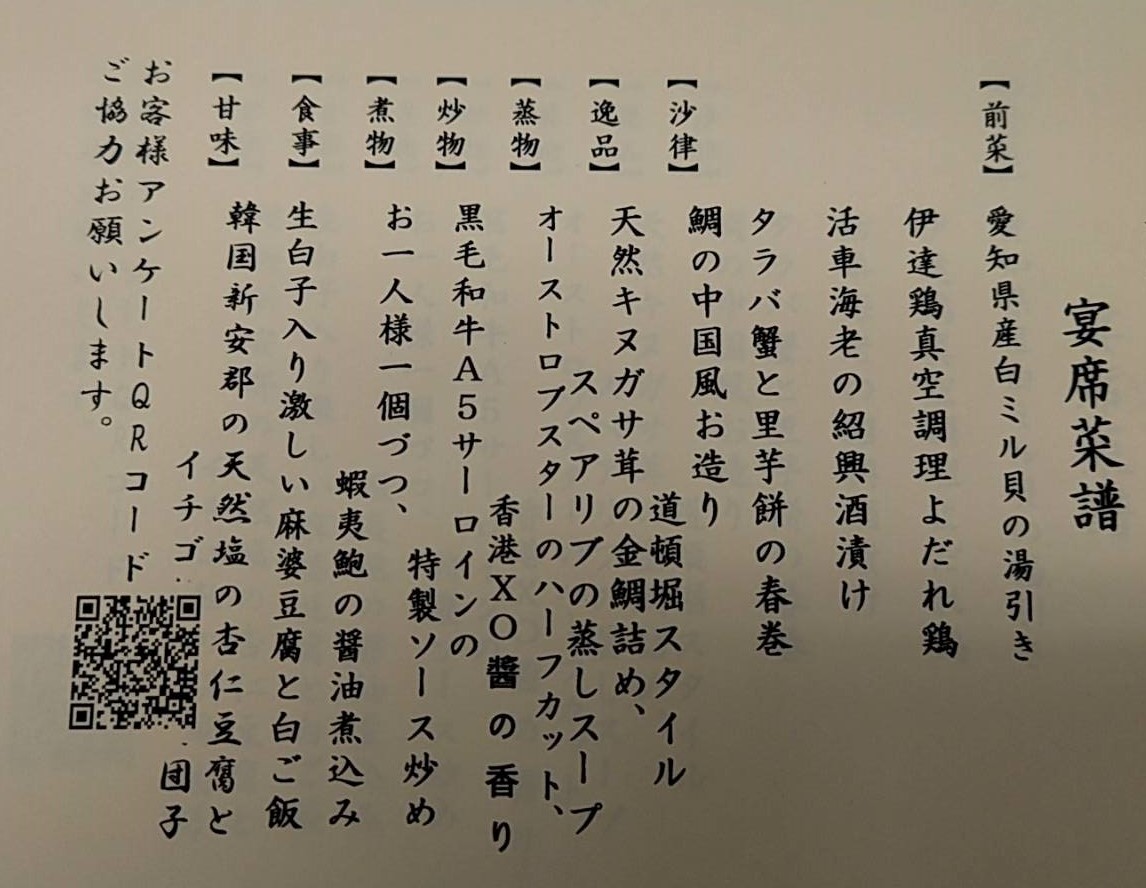 宴席菜譜
【前菜】 愛知県産白ミル貝の湯引き
伊達鶏真空調理よだれ鶏
活車海老の紹興酒漬け
タラバ蟹と里芋餅の春巻
【沙律】 鯛の中国風お造り
道頓堀スタイル
【逸品】 天然キヌガサ茸の金鯛詰め、
スペアリブの蒸しスープ
【蒸物】 オーストロブスターのハーフカット、
香港XO醬の香り
【炒物】 黒毛和牛A5サーロインの
特製ソース炒め
【煮物】 お一人様一個づつ、
蝦夷鮑の醤油煮込み
【食事】 生白子入り激しい麻婆豆腐と白ご飯
【甘味】 韓国新安郡の天然塩の杏仁豆腐と
イチゴ 団子
お客様アンケートQRコード
ご協力お願いします。